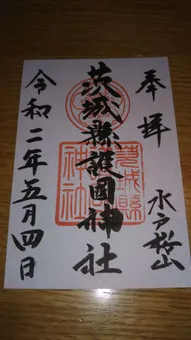 奉拝
水戸桜山
茨城縣護國神社
茨城縣
神社
令和二年五月四日